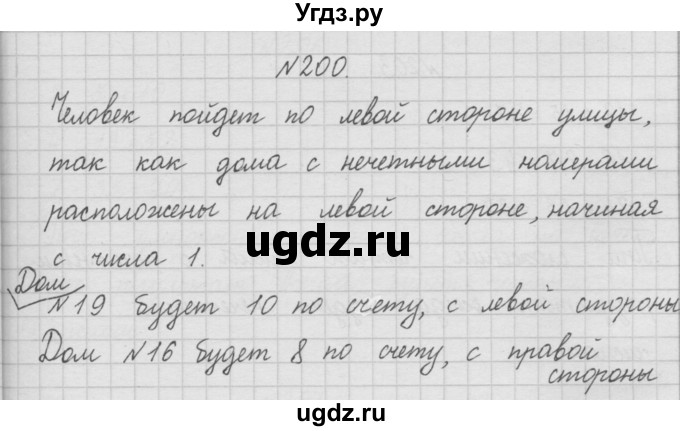 Угдз.ру
N200.
Человек пойдет по левой стороне улицы,
так как дома с нечетными номерами
расположены на левой стороне, начиная
с числа 1.
ugdz.ru
Дом
N19 будет 10 по счету, с левой стороны
Дом N16 будет 8 по счету, с правой
стороны
ugdz.ru